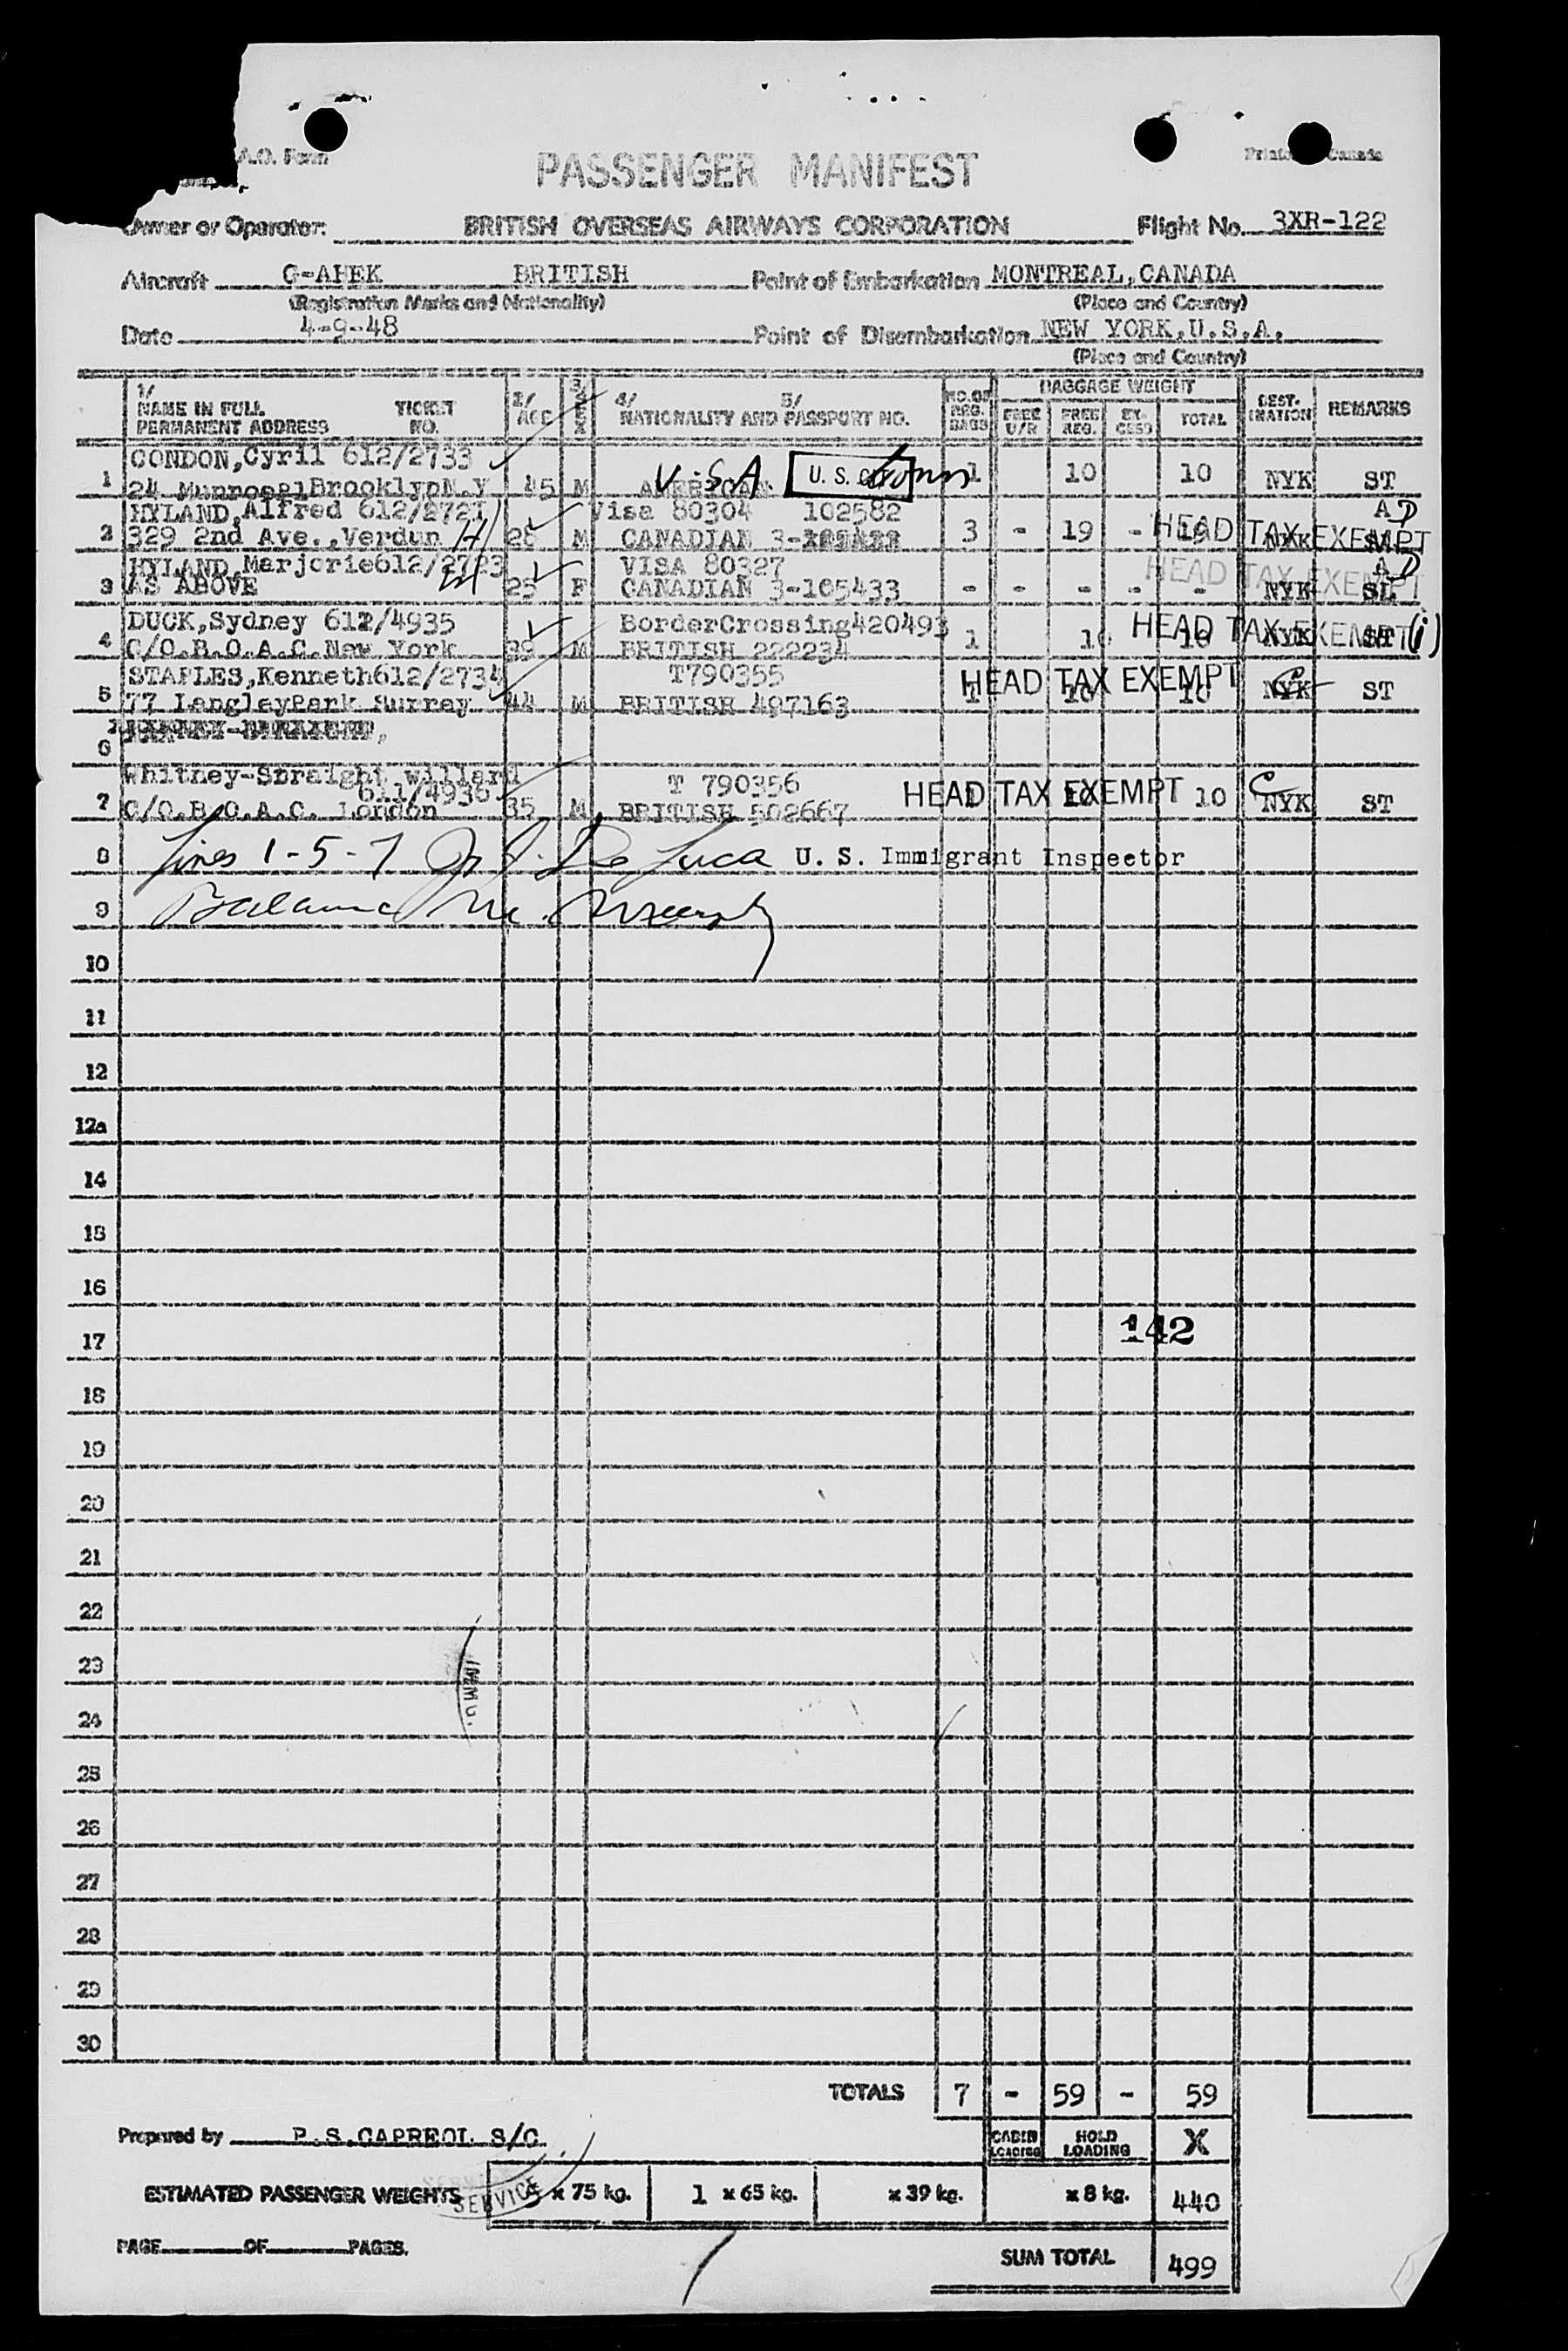 A.O. Form
PASSENGER MANIFEST
Canada
Owner or Operator: BRITISH OVERSEAS AIRWAYS CORPORATION Flight No. 3XR-122
Aircraft G-AHEK BRITISH Point of Embarkation MONTREAL,CANADA
(Registration Marks and Nationality) (Place and Country)
Date 4-9-48 Point of Disembarkation NEW YORK,U.S.A.
(Place and Country)
1/ NAME IN FULL PERMANENT ADDRESS TICKET NO. 2/ AGE 3/ SEX 4/ 5/ NATIONALITY AND PASSPORT NO. NO.OF REG. BAGS BAGGAGE WEIGHT FREE U/R FREE REG. EX-CESS TOTAL DEST-INATION REMARKS
CONDON,Cyril 612/2733
1 24 Brooklyn N.Y 45 M U.S.A. AMERICAN U. S. 1 10 10 NYK ST
HYLAND,Alfred 612/2721 Visa 80304 102582 AD
2 329 2nd Ave.,Verdun H 28 M CANADIAN 3- 3 - 19 - 19 HEAD TAX EXEMPT NYK
HYLAND,Marjorie612/2723 VISA 80327 AD
3 AS ABOVE 25 F CANADIAN 3-105433 - - - - - HEAD TAX EXEMPT NYK SL
DUCK,Sydney 612/4935 BorderCrossing420493
4 C/O.B.O.A.C.New York 39 M BRITISH 222234 1 10 10 HEAD TAX EXEMPT NYK ST (i)
STAPLES,Kenneth612/2734 T790355
5 77 LangleyPark Surrey 44 M BRITISH 497163 1 10 10 HEAD TAX EXEMPT NYK ST
6
Whitney-Straight,willard T 790356
611/4936
7 C/O.B.O.A.C. London 35 M BRITISH 502667 1 10 10 HEAD TAX EXEMPT C NYK ST
8 Lines 1-5-7 De Luca U. S. Immigrant Inspector
9 Balance
10
11
12
12a
14
15
16
17 142
18
19
20
21
22
23 IMMG.
24
25
26
27
28
29
30
TOTALS 7 - 59 - 59
Prepared by P.S.CAPREOL S/O. CABIN LOADING HOLD LOADING X
ESTIMATED PASSENGER WEIGHTS SERVICE 5 x 75 kg. 1 x 65 kg. x 39 kg. x 8 kg. 440
PAGE OF PAGES. SUM TOTAL 499